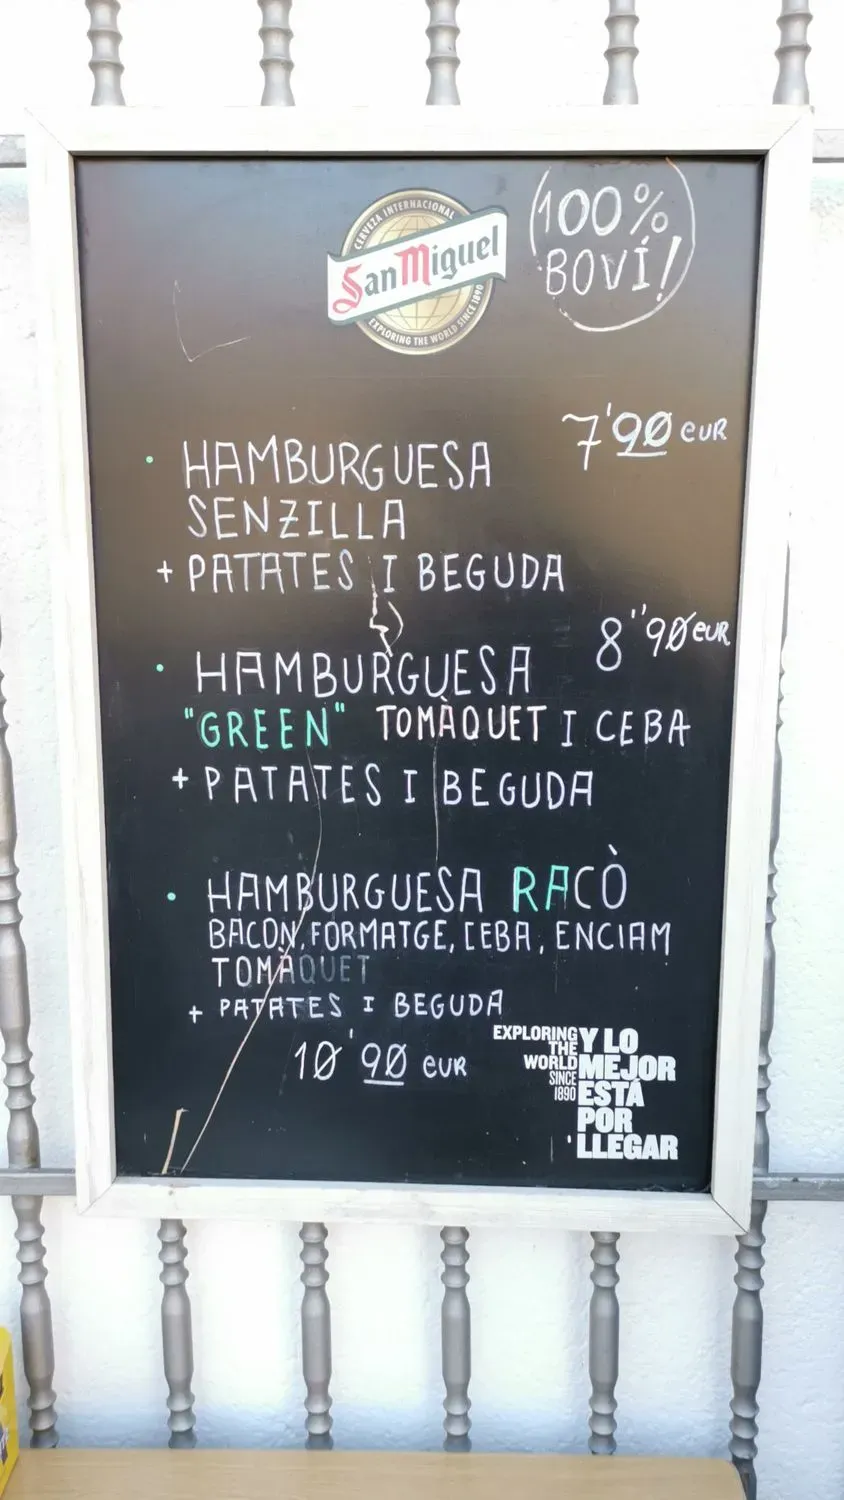 CERVEZA INTERNACIONAL
San Miguel
EXPLORING THE WORLD SINCE 1890
100%
BOVÍ!
7'90 eUR
· HAMBURGUESA
SENZILLA
+ PATATES I BEGUDA
8''90 eUR
· HAMBURGUESA
"GREEN" TOMÀQUET I CEBA
+ PATATES I BEGUDA
· HAMBURGUESA RACÒ
BACON, FORMATGE, CEBA, ENCIAM
TOMÀQUET
+ PATATES I BEGUDA
10'90 eUR
EXPLORING
THE
WORLD
SINCE
1890
Y LO
MEJOR
ESTÁ
POR
LLEGAR